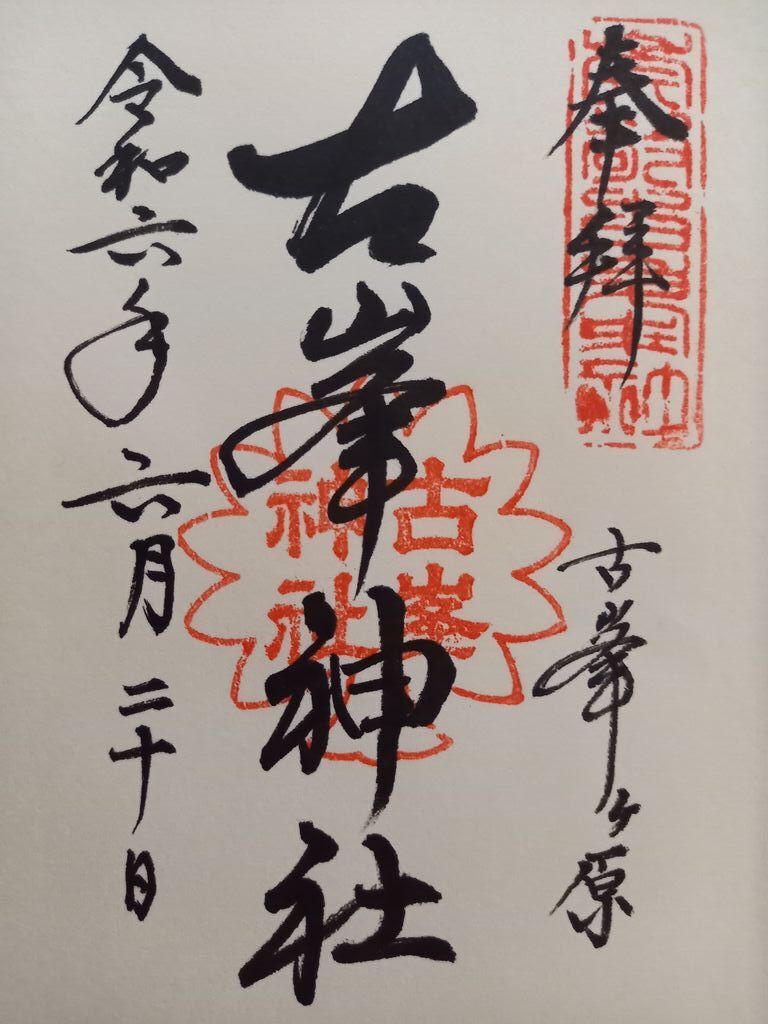 奉拝
古峯ヶ原
古峯神社
古峯
神社
令和六年六月二十日